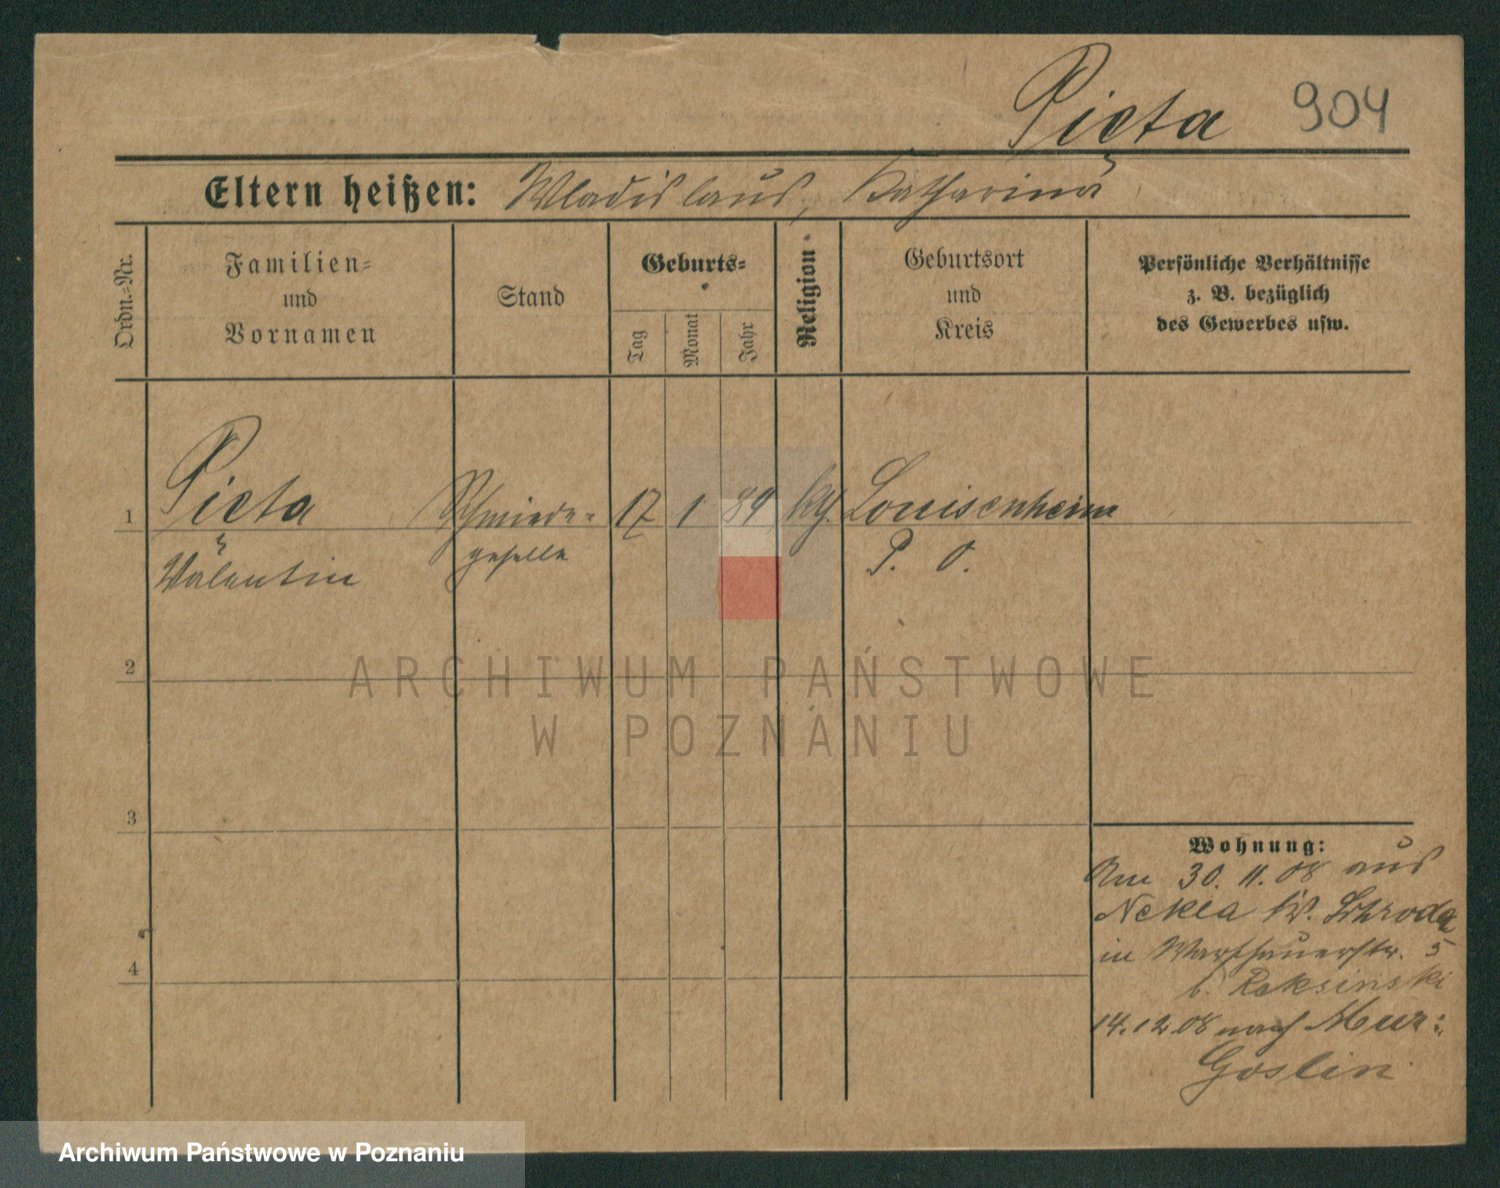 Pięta 904
Eltern heißen: Wladislaus, Katharina
Ordn.=Nr.
Familien=
und
Vornamen
Stand
Geburts=
Tag
Monat
Jahr
Religion
Geburtsort
und
Kreis
Persönliche Verhältnisse
z. B. bezüglich
des Gewerbes usw.
1
Pięta
Valentin
Schmiede=
geselle
17 1 89
Louisenheim
P. O.
2
3
4
Wohnung:
Am 30. 11. 08 aus
Nekla Kr. Schroda
in Warschauerstr. 5
b.
14.12.08 nach Mur:
Goslin
ARCHIWUM PAŃSTWOWE
W POZNANIU
Archiwum Państwowe w Poznaniu